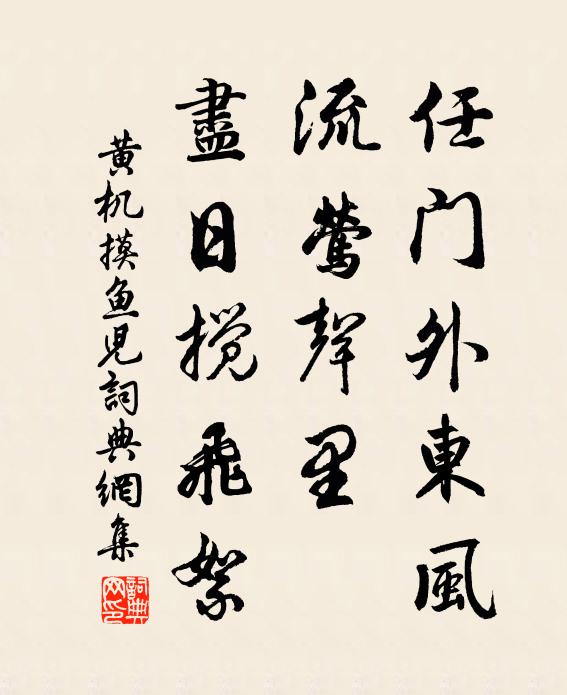 任门外東風
流莺聲里
盡日搅飛絮
黄机摸鱼児詞典網集
詞典网印